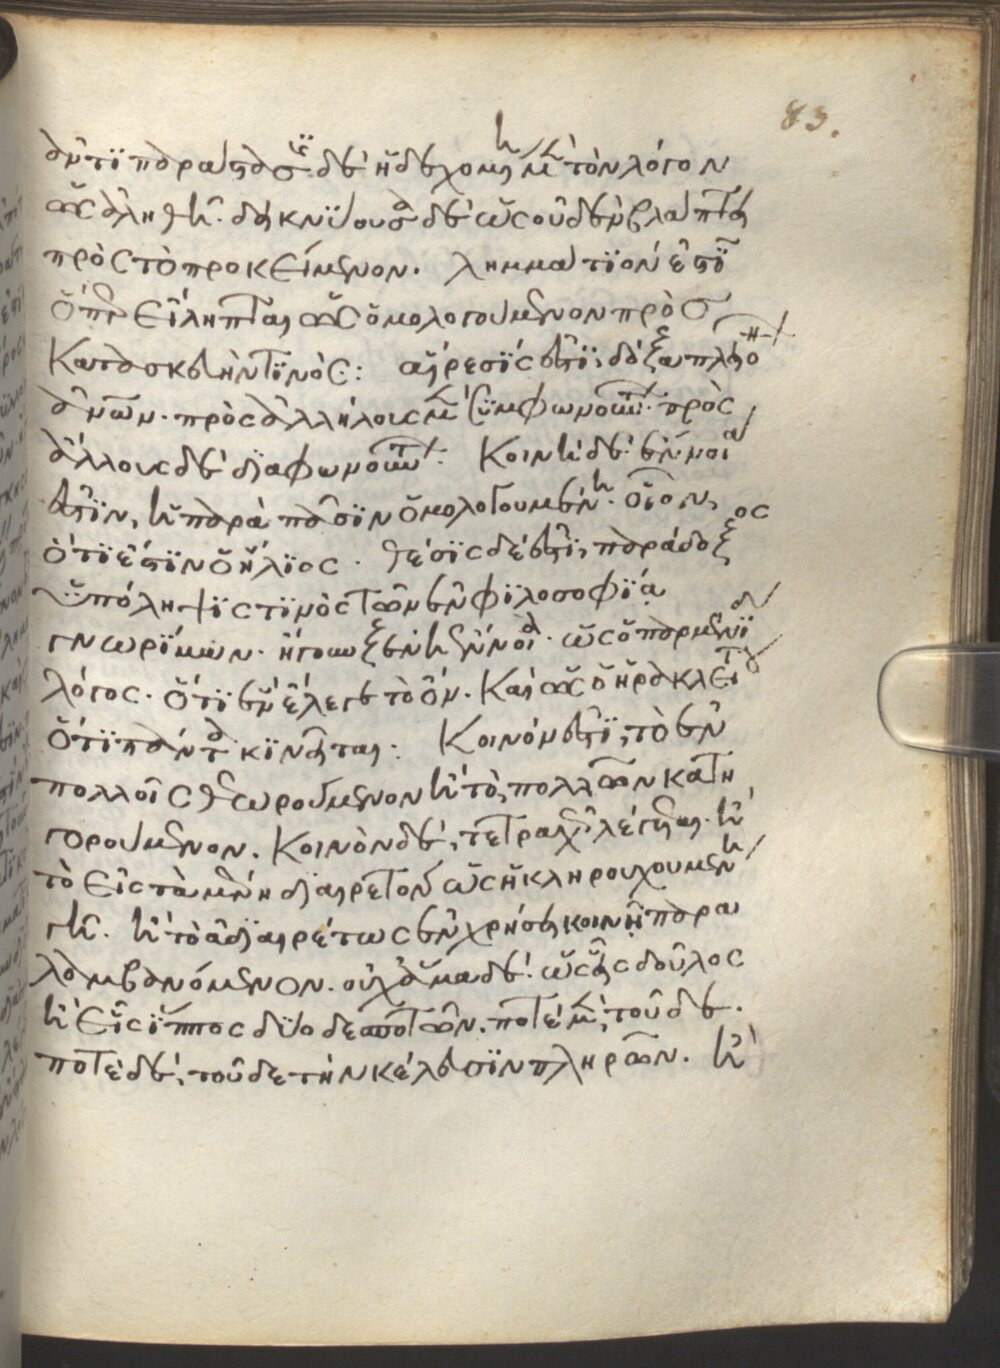 83.
ἀντιπαράστασις δὲ ἡ δεχομένη μὲν τὸν λόγον
ὡς ἀληθῆ. δεικνύουσα δὲ ὡς οὐδὲν βλάπτει
πρὸς τὸ προκείμενον. λημμάτιον ἐστὶ
ὅπερ εἴληπται ὡς ὁμολογούμενον πρὸς
κατασκευὴν τινός: αἵρεσίς ἐστι, δόξα πλειό
ἀνῶν. πρὸς ἀλλήλους μὲν συμφωνούντων. πρὸς
ἄλλους δὲ διαφωνούντων. Κοινὴ δὲ ἔννοια
ἐστιν, ἡ παρὰ πᾶσιν ὁμολογουμένη. οἷον,
ὅτι ἔστιν ὁ ἥλιος. θέσις δέ ἐστι, παράδοξος
ὑπόληψις τινὸς τῶν ἐν φιλοσοφίᾳ
γνωρίμων. ἤγουν ξένη ἔννοια. ὡς ὁ παρμενίδου
λόγος. ὅτι ἓν ἔλεγε τὸ ὄν. καὶ ὡς ὁ ἡρακλείτου
ὅτι πάντα κινεῖται: Κοινόν ἐστι, τὸ ἐν
πολλοῖς θεωρούμενον ἢ τὸ, πολλῶν κατη
γορούμενον. Κοινὸν δὲ, τετραχῶς λέγεται. ἢ
τὸ εἰς τὰ μέρη διαιρετὸν ὡς ἡ κληρουχουμένη
γῆ. ἢ τὸ ἀδιαιρέτως ἐν χρήσει κοινῇ παρα
λαμβανόμενον. οὐχ ἅμα δὲ. ὡς εἷς δοῦλος
ἢ εἷς ἵππος δύο δεσποτῶν. ποτὲ μὲν, τοῦδε.
ποτὲ δὲ, τοῦδε τὴν κέλευσιν πληρῶν. ἢ